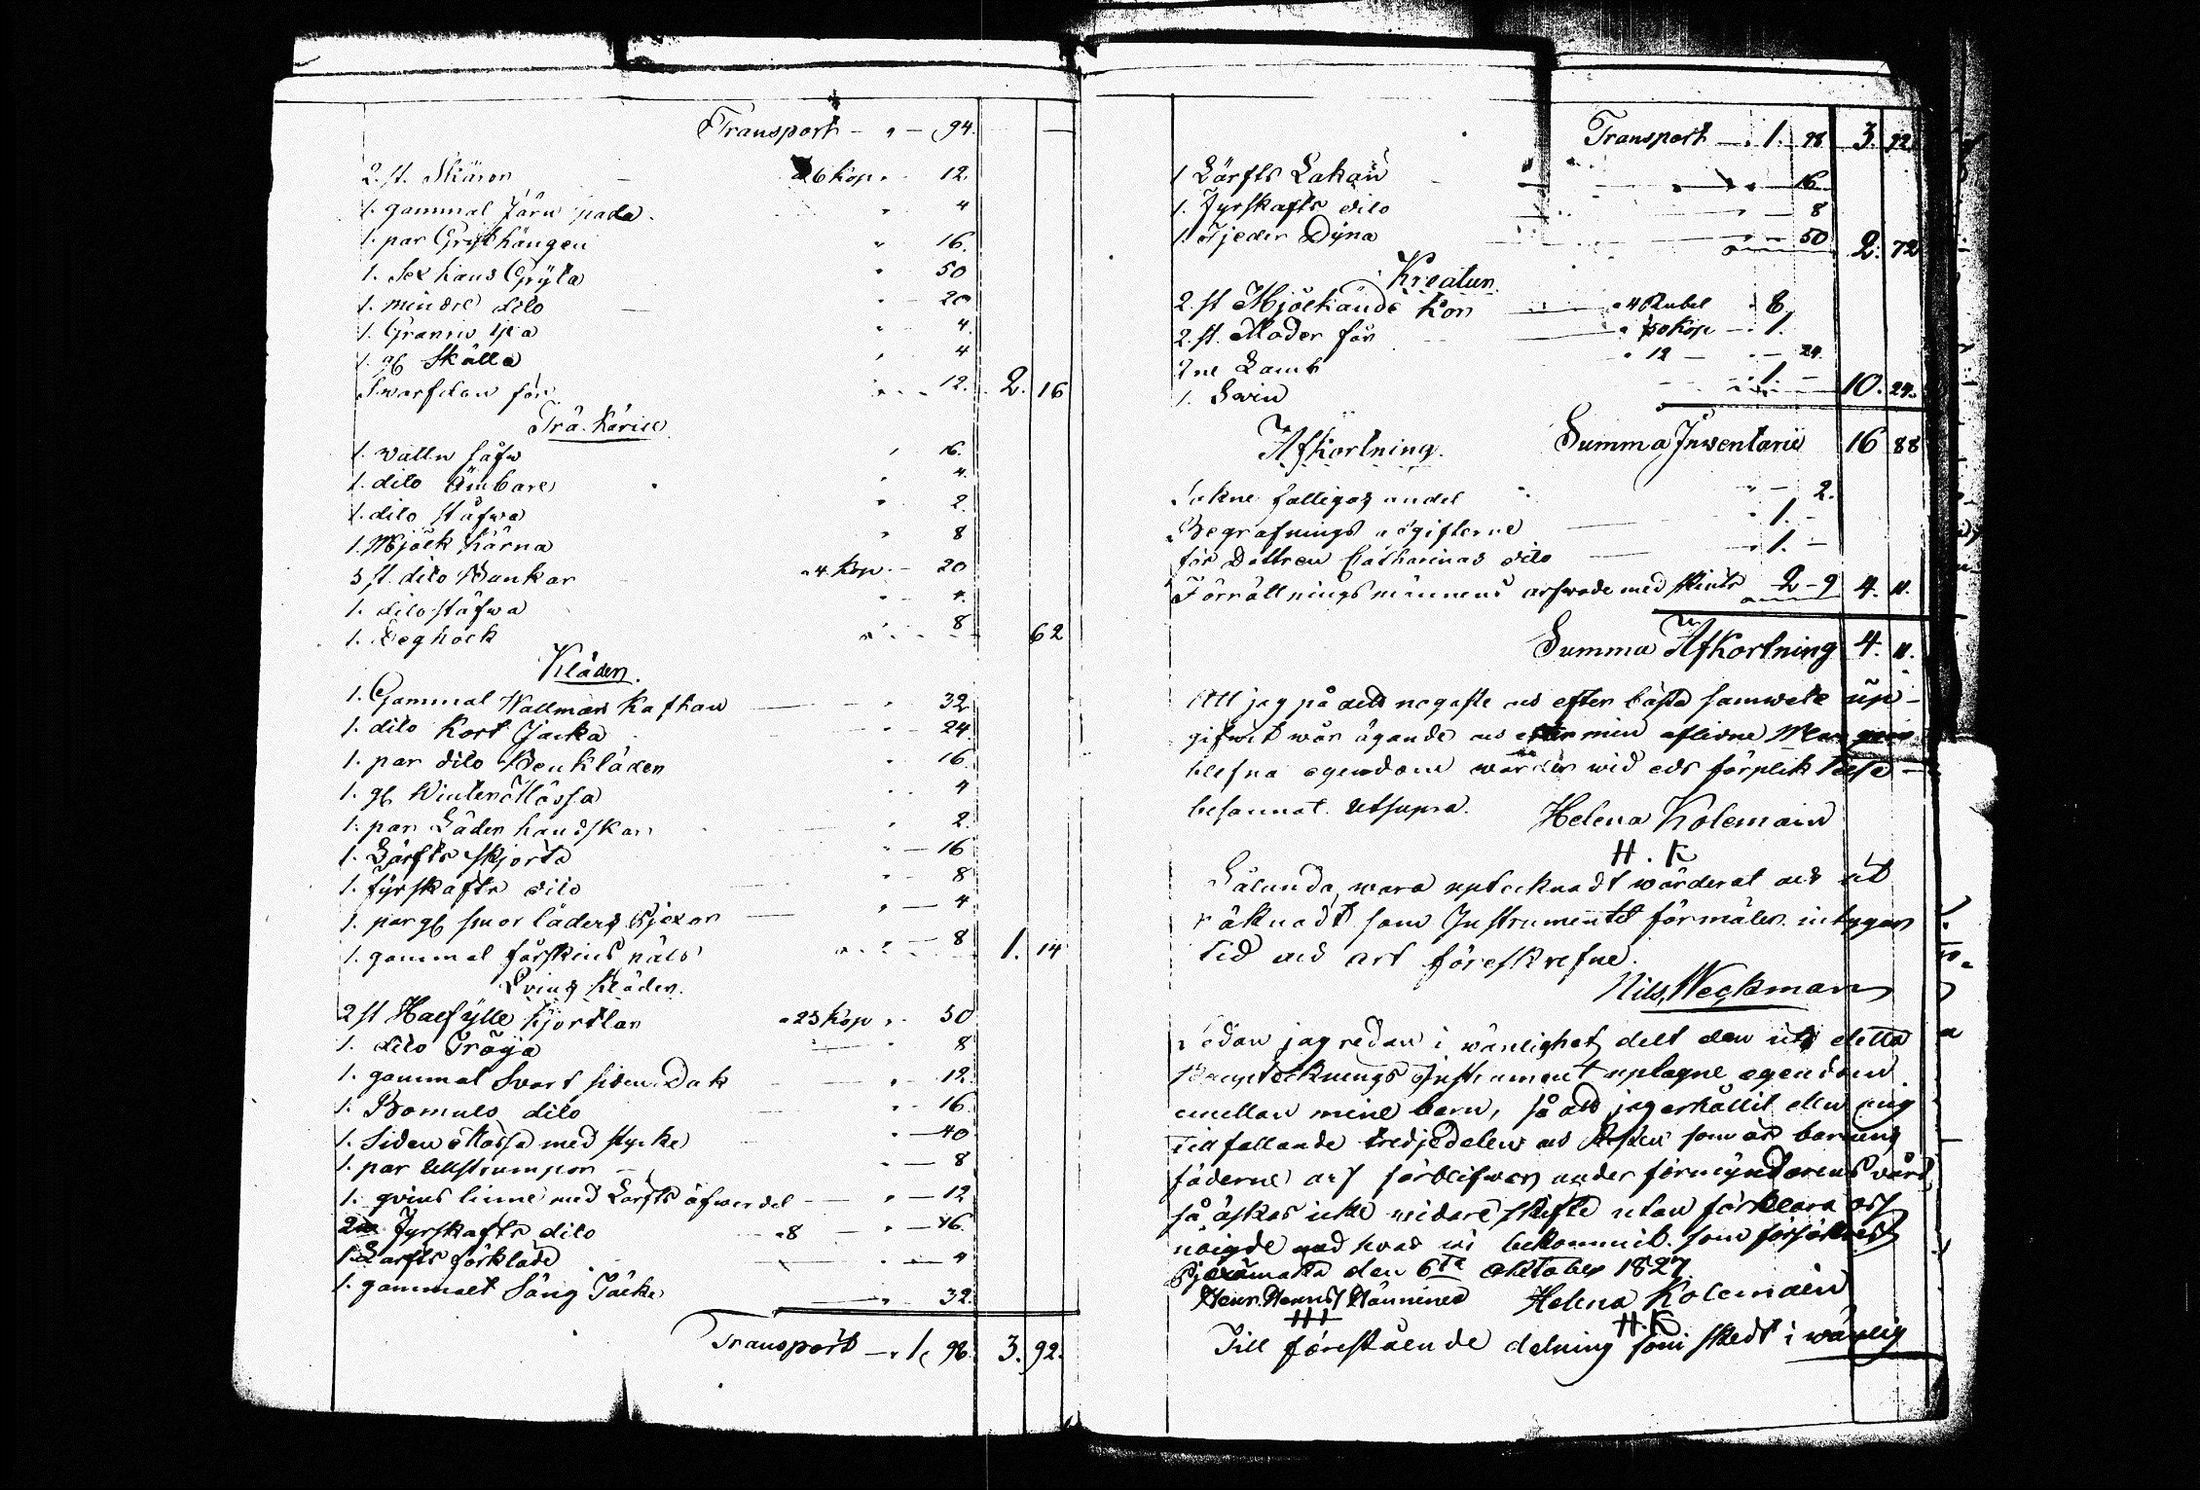 Transport — " — 94. —
2. st. Skäror — a 6 kop " 12.
1. gammal Järn pada " 4
1. par Gryt hängen " 16.
1. Sex kans Gryta " 50
1. mindre dito — " 20
1. " 4.
1. gl Skålla " 4
för " 12. 2. 16
Trä Käril
1. vatten såfw " 16.
1. dito Ämbare " 4.
1. dito stäfwa " 2.
1. Mjölk kärna " 8
5 st. dito Bunkar a 4 kop — 20
1. dito stäfwa " 4.
1. " 8 62
Kläder.
1. Gammal Wallmars Kafthan " 32
1. dito Kort Jacka " 24
1. par dito Benkläder " 16.
1. gl Winter Mössa " 4
1. par Läder handskar " 2.
1. Lärfts Skjorta " — 16
1. fyrskafts dito " — 8
1. par gl smorläders " — 4
1. gammal fårskins päls " — 8 1. 14
Qvins kläder.
2 st Halfylle Kjortlar a 25 Kop " 50
1. dito Tröja — 8
1. gammal Svart siden Duk " — 12.
1. Bomuls dito " — 16
1. Siden Mössa med stycke " — 40
1. par Ullstrumpor — " — 8
1. qvins linne med Lärfts öfwerdel — " — 12
2ne Fyrskafts dito a 8 — " — 16.
1. Lärfts förkläde " — 4
1. gammalt Säng Täcke — 32.
Transport — " 1. 98. 3. 92.
Transport — " 1. 98 3. 92.
1 Lärfts Lakan " — 16
1. Fyrskafts dito — 8
1. Fjeder Dyna — 50 2. 72
Kreatur.
2. st Mjölkande Kor a 4 Rubel " 8
2. st. Moder får a 50 Kop — 1.
2ne Lamb a 12 — " — 24.
1. Swin " 1. — 10. 24.
Afkortning. Summa Inventarii 16 88
andel " — 2.
Begrafnings utgifterne — " 1. —
för Dottren Catharinas dito — " 1. —
Förrättningsmännens arfwode med 2 — 9 4. 11.
Summa Afkortning 4. 11.
Att jag på det nogaste och efter bästa samwete upp-
gifwit wår ägande och min aflidne Mans
egendom warder wid eds förpliktelse
besannat. Utsupra. Helena Kolemain
H. K
Sålunda wara upteknadt wärderat och ut
räknadt som Instrumentet förmäler intygar
tid och ort föreskrefne.
Nils Weckman
Sedan jag redan i wänlighet delt den uti detta
Boupteknings Instrument uptagne egendom
emellan mine barn, så att jag erhållit den mig
tillfallande tredjedelen och som är barnens
fäderne arf förblifwer under förmyndarens vård,
så äskas icke widare skifte utan förklara oss
nöigde med hvad wi bekommit. som försäkras
den 6te Oktober 1827.
Helena Kolemain
H.K
Till förestående delning som skedt i wänlig